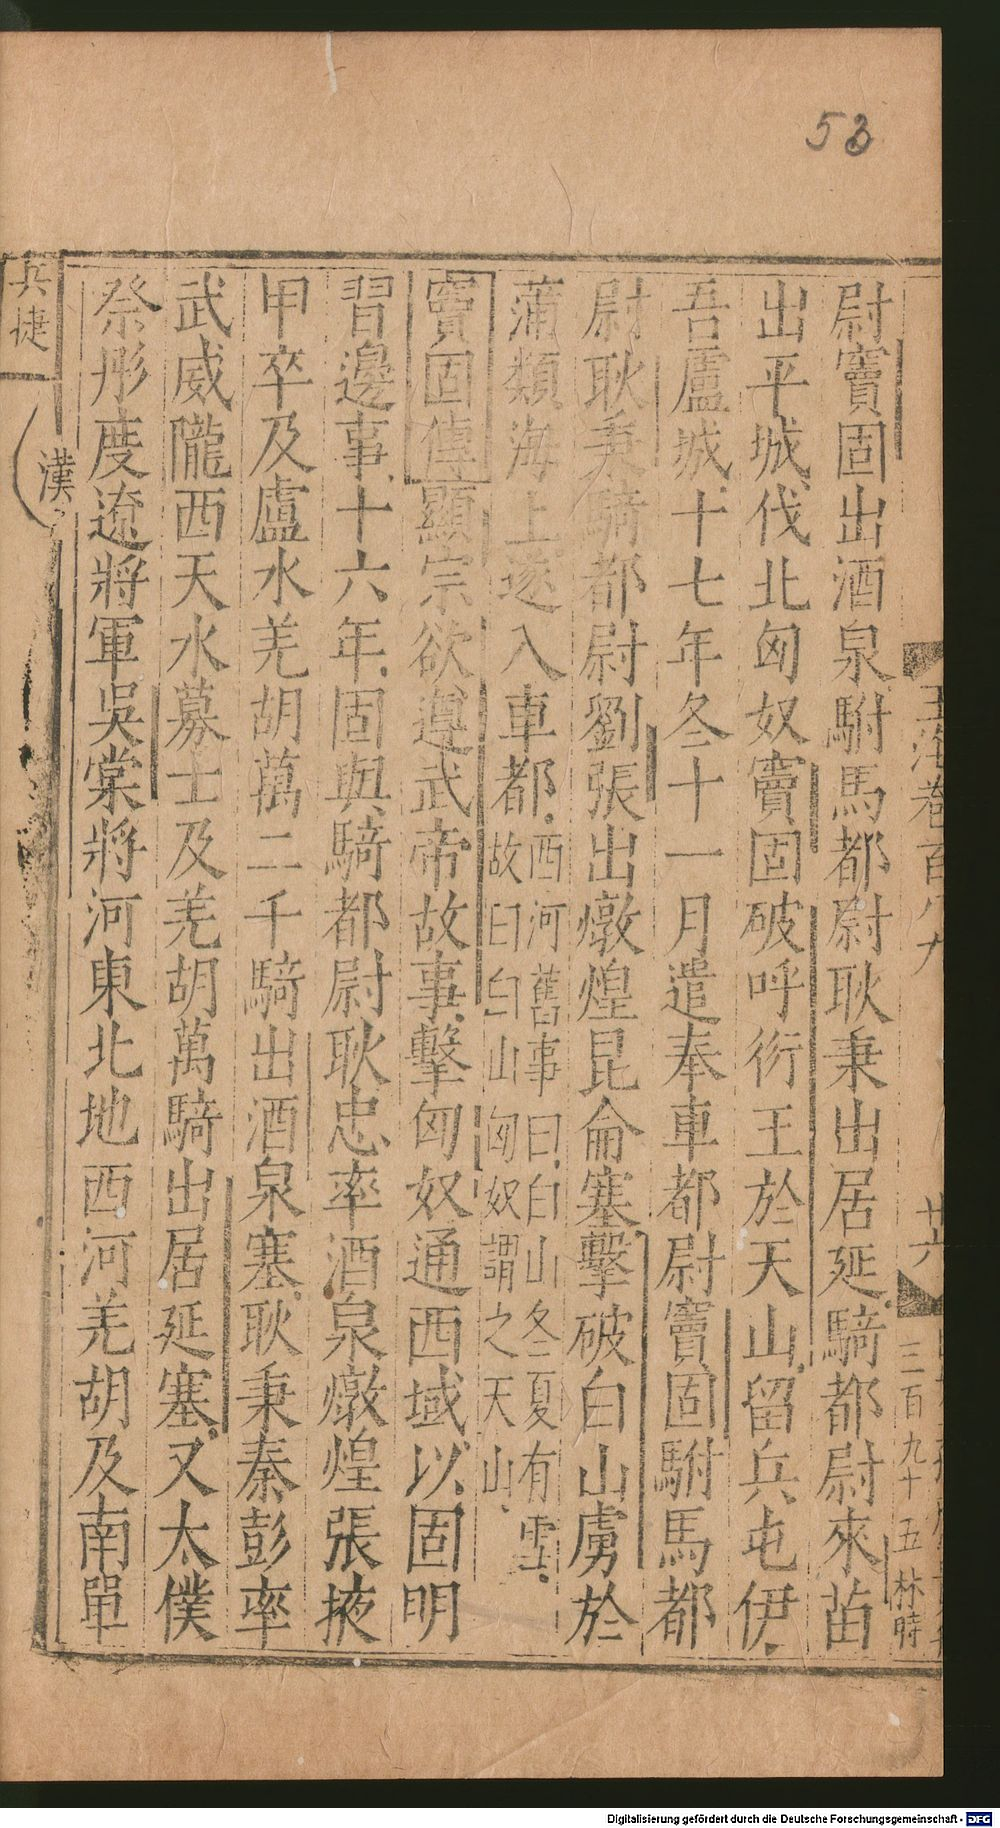 53
尉竇固出酒泉駙馬都尉耿秉出居延騎都尉來苗
出平城伐北匈奴竇固破呼衍王於天山留兵屯伊
吾盧城十七年冬十一月遣奉車都尉竇固駙馬都
尉耿秉騎都尉劉張出燉煌昆侖塞擊破白山虜於
蒲類海上遂入車都西河舊事曰白山冬夏有雪
故曰白山匈奴謂之天山
竇固傳顯宗欲遵武帝故事擊匈奴通西域以固明
習邊事十六年固與騎都尉耿忠率酒泉燉煌張掖
甲卒及盧水羌胡萬二千騎出酒泉塞耿秉秦彭率
武威隴西天水募士及羌胡萬騎出居延塞又太僕
祭肜度遼將軍吳棠將河東北地西河羌胡及南單
玉海卷百八九
廿六
三百九十五林時
兵捷
漢
Digitalisierung gefördert durch die Deutsche Forschungsgemeinschaft - DFG